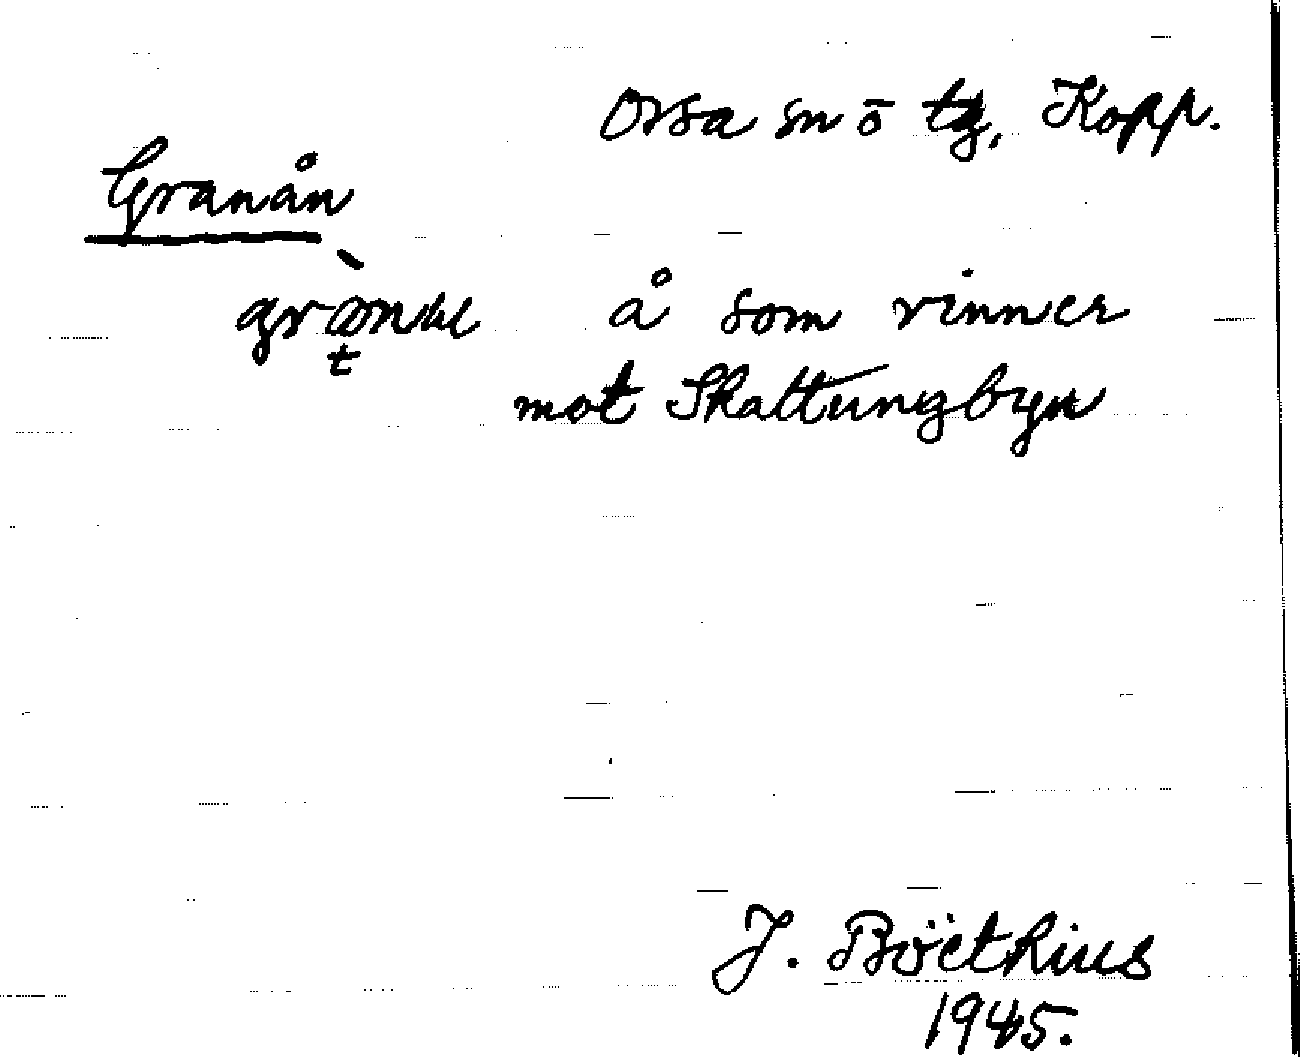 Orsa sn o tg, Kopp.
Granån
å som rinner
mot Skattungbyn
J. Boëthius
1945.